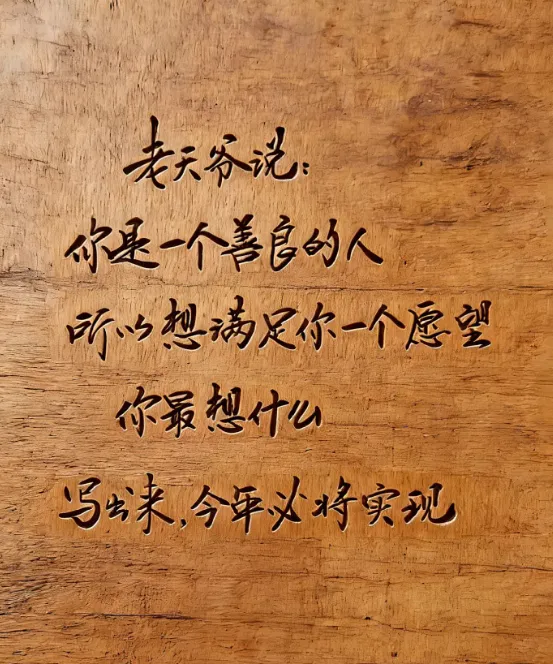 老天爷说：
你是一个善良的人
所以想满足你一个愿望
你最想什么
写出来，今年必将实现